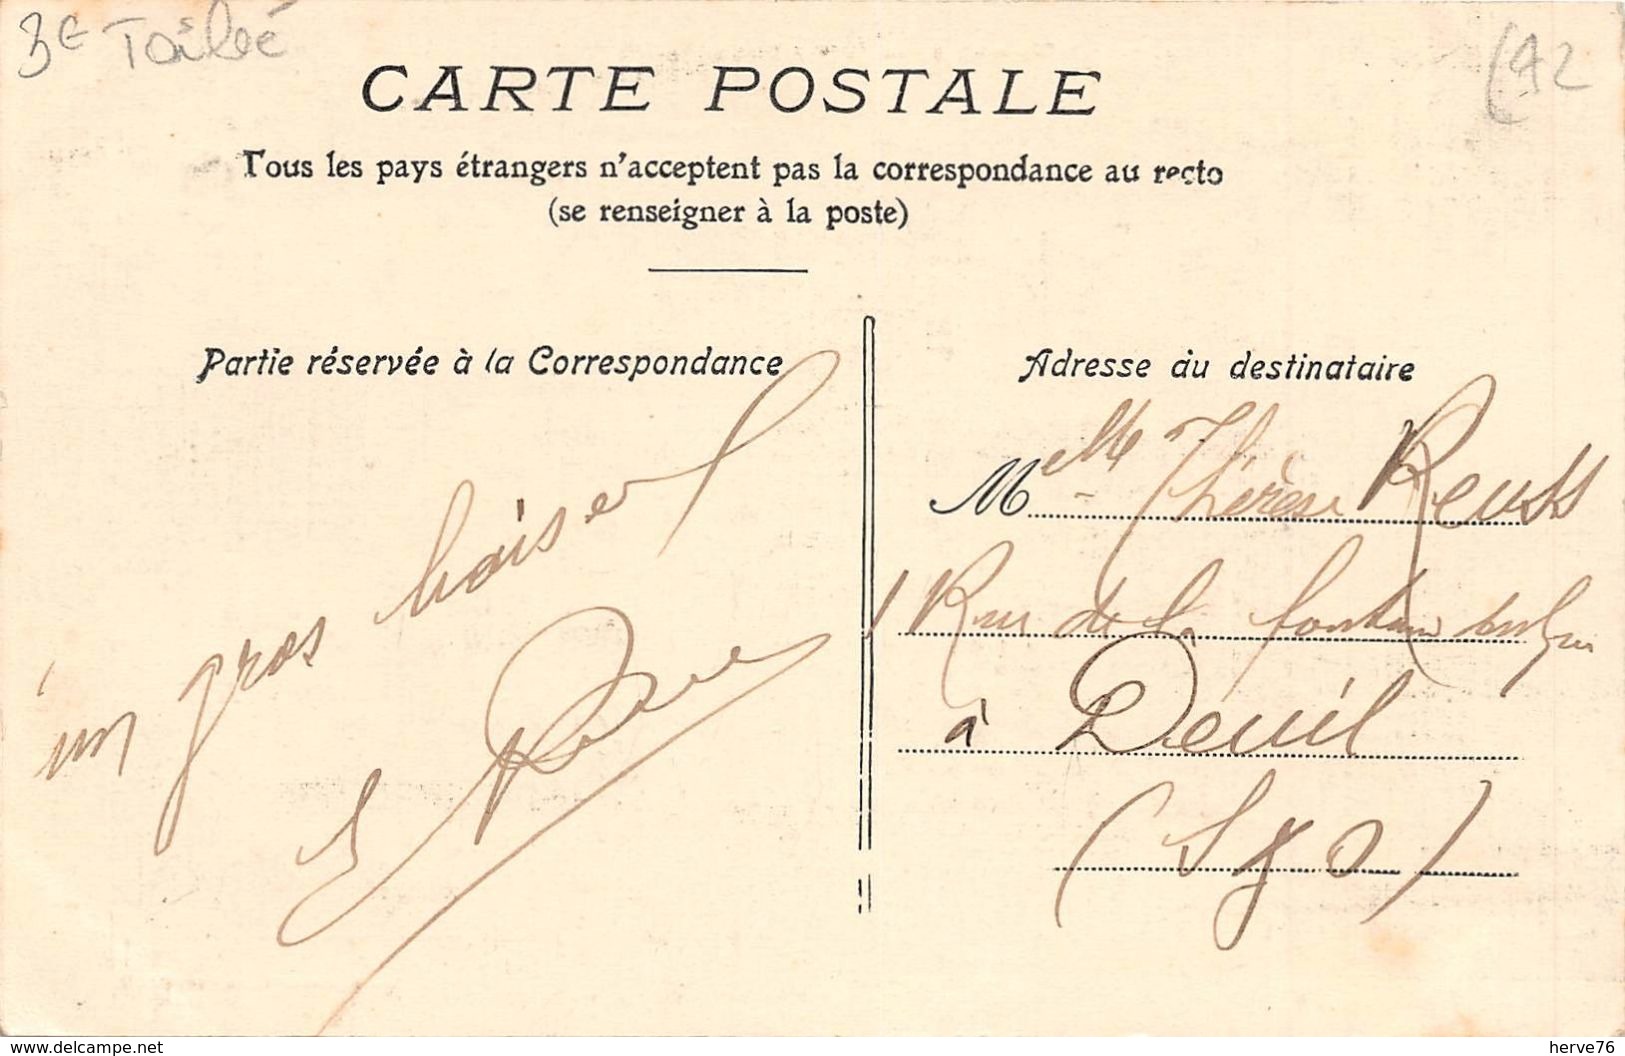 3€ Toilée
(92
CARTE POSTALE
Tous les pays étrangers n'acceptent pas la correspondance au recto
(se renseigner à la poste)
Partie réservée à la Correspondance
un gros baiser
Adresse du destinataire
Melle Thérèse Reuss
1 Rue de la fontaine
à Deuil
(S & O)
www.delcampe.net
herve76